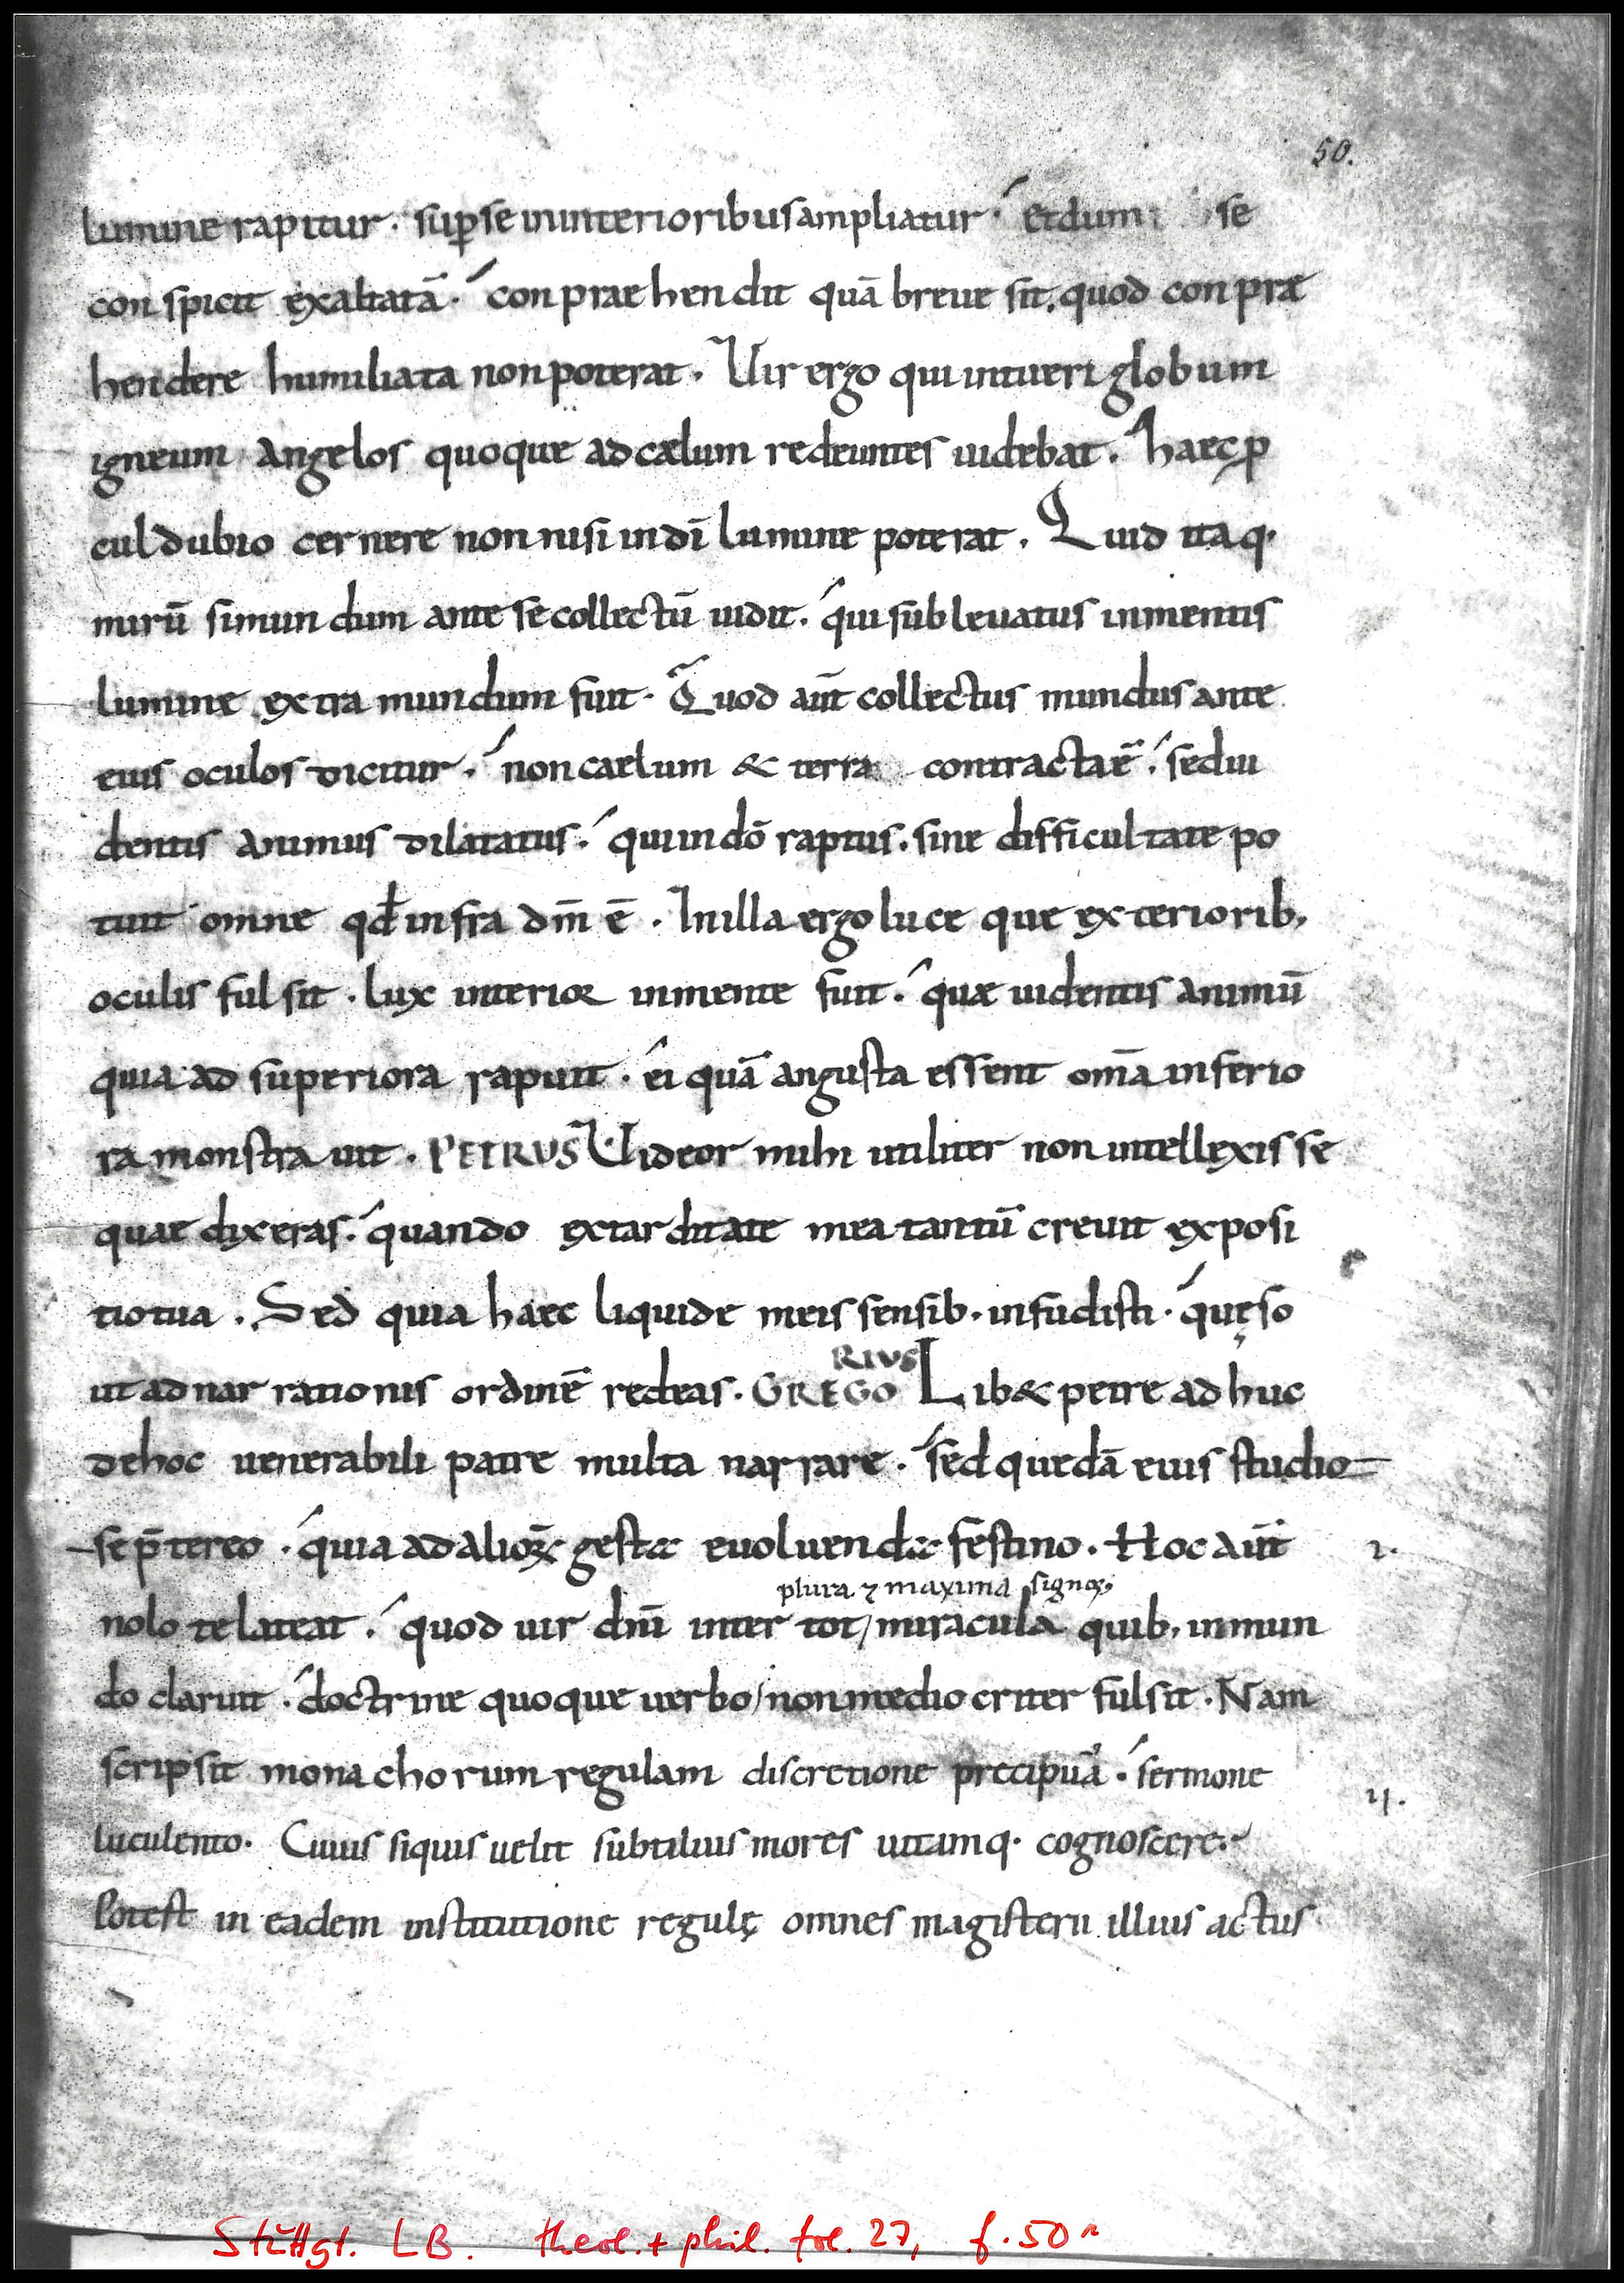 50.
lumine rapitur. sup̱ se in interioribus ampliatur. et dum se
conspicit exaltatā. conpraehendit quā breue sit. quod conprae
hendere humiliata non poterat. Uir ergo qui intueri globum
igneum angelos quoque ad cælum redeuntes uidebat. haec p
culdubio cernere non nisi in dī lumine poterat. Quid itaq·
mirū si mundum ante se collectū uidit. qui subleuatus in mentis
lumine extra mundum fuit. Quod aūt collectus mundus ante
eius oculos dicitur. non caelum & terra contracta ē. sed ui
dentis animus dilatatus. qui in dō raptus. sine difficultate po
tuit omne qđ infra dm̄ ē. In illa ergo luce que exteriorib,
oculis fulsit. lux interior in mente fuit. quæ uidentis animū
quia ad superiora rapuit. ei quā angusta essent om̄a inferio
ra monstrauit. PETRUS Uideor mihi utiliter non intellexisse
quae dixeras. quando ex tarditate mea tantū creuit exposi
tio tua. Sed quia haec liquide meis sensib. infudisti. quęso
RIUS
ut ad narrationis ordinē redeas. GREGO Lib& petre adhuc
de hoc uenerabili patre multa narrare. sed quedā eius studio
se p̄tereo. quia ad alioꝝ gesta euoluenda festino. Hoc aūt
2.
plura ⁊ maxima signoꝝ
nolo te lateat. quod uir dnī inter tot/miracula quib, in mun
do claruit. doctrine quoque uerbo/non mediocriter fulsit. Nam
scripsit monachorum regulam discretione precipuā. sermone
luculento. Cuius siquis uelit subtilius mores uitamq· cognoscere.
Potest in eadem institutione regulę omnes magisterii illius actus
Stuttgt. LB. theol. + phil. fol. 27, f. 50r